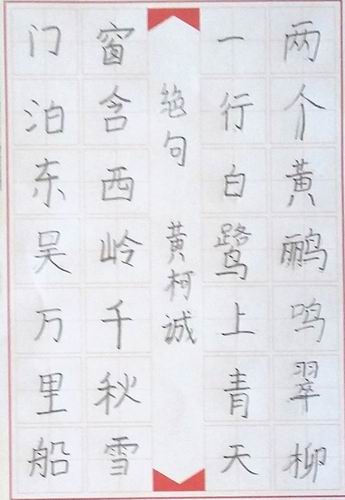 两个黄鹂鸣翠柳
一行白鹭上青天
绝句 黄柯诚
窗含西岭千秋雪
门泊东吴万里船